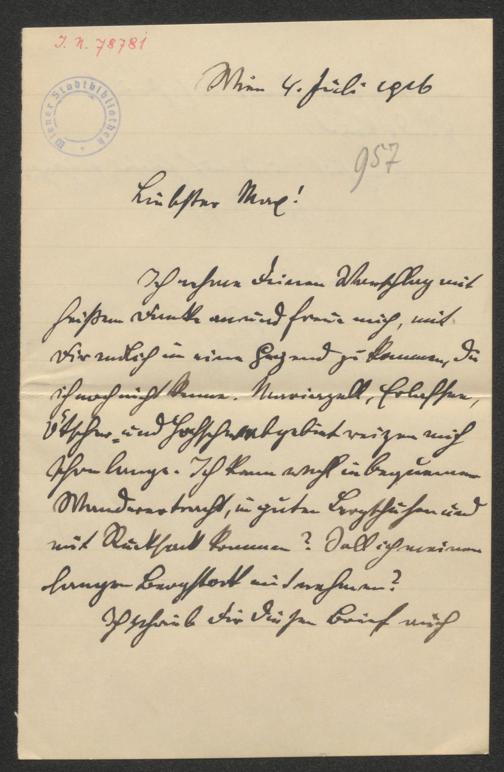 J. N. 78781
Wiener Stadtbibliothek
Wien 4. Juli 1916
957
Liebster Max!
Ich nehme Deinen Vorschlag mit
heißem Danke an und freue mich, mit
Dir endlich in eine Gegend zu kommen, die
ich noch nicht kenne. Mariazell, Erlafsee,
Ötscher- und Hochschwabgebiet reizen mich
schon lange. Ich kann wohl in bequemer
Wanderertracht, in guten Bergschuhen und
mit Rucksack kommen? Soll ich meinen
langen Bergstock mitnehmen?
Ich schreib Dir diesen Brief auch